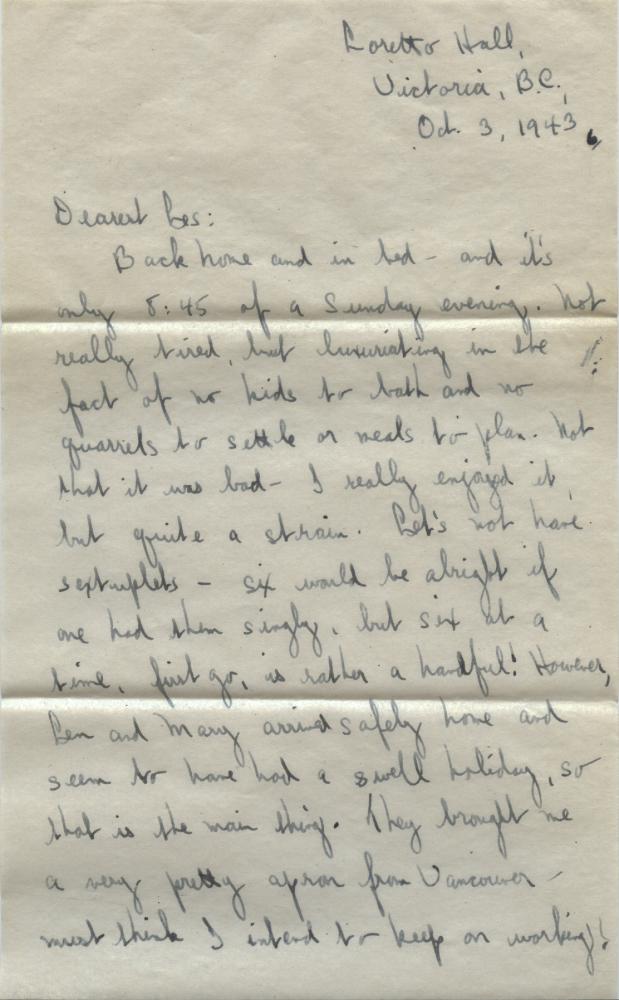 Loretto Hall,
Victoria, B.C.,
Oct. 3, 1943
Dearest Les:
Back home and in bed - and it's
only 8:45 of a Sunday evening. Not
really tired, but luxuriating in the
fact of no kids to bath and no
quarrels to settle or meals to plan. Not
that it was bad - I really enjoyed it,
but quite a strain. Let's not have
sextuplets - six would be alright if
one had them singly, but six at a
time, first go, is rather a handful! However,
Len and Mary arrived safely home and
seem to have had a swell holiday, so
that is the main thing. They brought me
a very pretty apron from Vancouver -
must think I intend to keep on working!